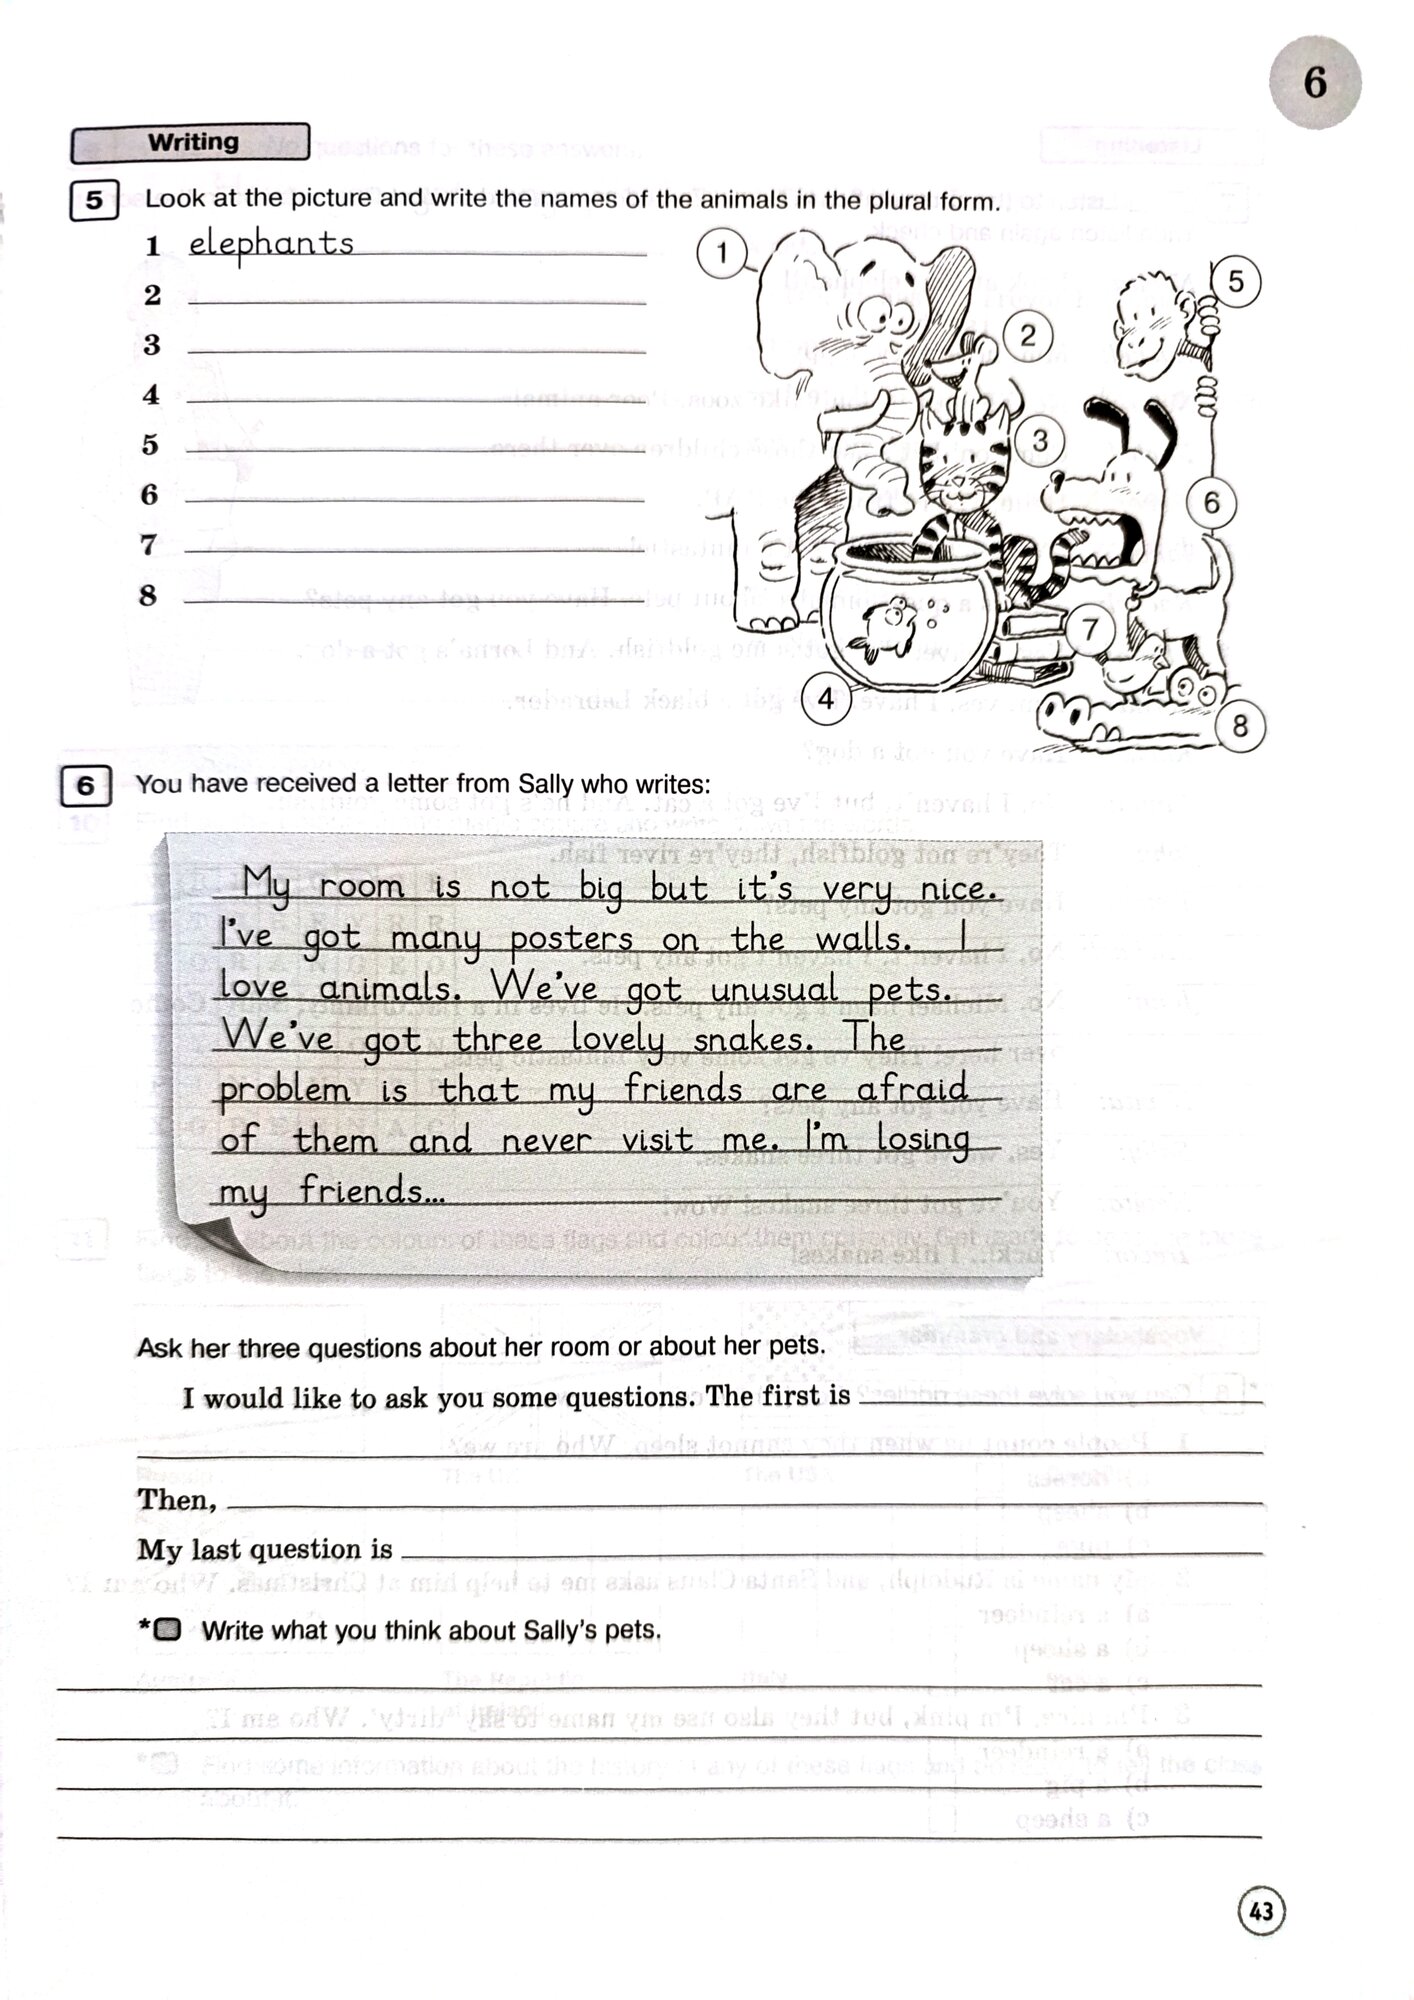 6
Writing
5 Look at the picture and write the names of the animals in the plural form.
1 elephants
2
3
4
5
6
7
8
1
2
3
4
5
6
7
8
6 You have received a letter from Sally who writes:
My room is not big but it's very nice.
I've got many posters on the walls. I
love animals. We've got unusual pets.
We've got three lovely snakes. The
problem is that my friends are afraid
of them and never visit me. I'm losing
my friends...
Ask her three questions about her room or about her pets.
I would like to ask you some questions. The first is
Then,
My last question is
* Write what you think about Sally's pets.
43